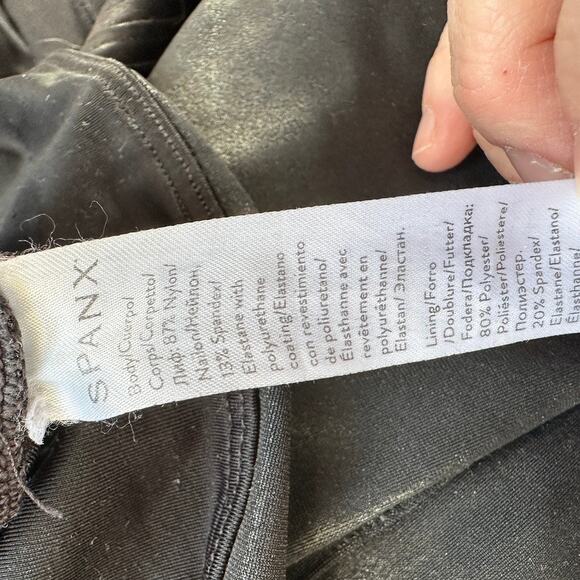 SPANX
Body/Cuerpo/
Corps/Corpetto/
Лиф: 87% Nylon/
Nailon/Нейлон
13% Spandex/
Elastane with
polyurethane
coating/Elastano
con revestimiento
de poliuretano/
Élasthanne avec
revêtement en
polyuréthanne/
Elastan/ Эластан.
Lining/Forro
/Doublure/Futter/
Fodera/Подкладка:
80% Polyester/
Poliéster/Poliestere/
Полиэстер.
20% Spandex/
Elastane/Elastano/
Élasthane/